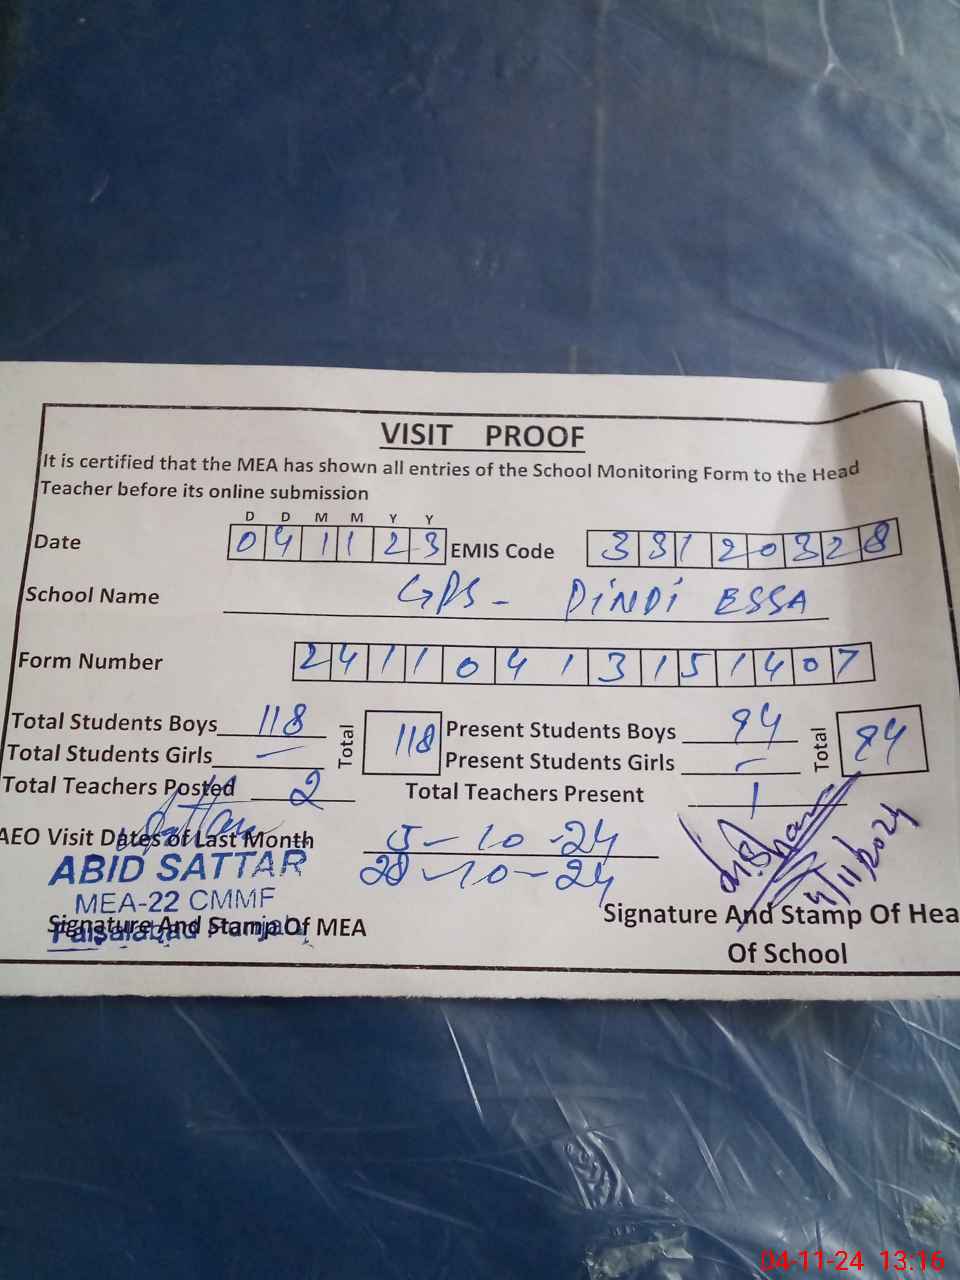 VISIT PROOF
It is certified that the MEA has shown all entries of the School Monitoring Form to the Head
Teacher before its online submission
D D M M Y Y
Date 041123 EMIS Code 33120328
School Name GPS - DINDI ESSA
Form Number 24110413151407
Total Students Boys 118 Total 118 Present Students Boys 94 Total 94
Total Students Girls — Present Students Girls —
Total Teachers Posted 2 Total Teachers Present 1
AEO Visit Dates of Last Month 5-10-24
28-10-24
4/11/2024
ABID SATTAR
MEA-22 CMMF
Faisalabad Punjab
Signature And Stamp Of MEA
Signature And Stamp Of Hea
Of School
04-11-24 13:16